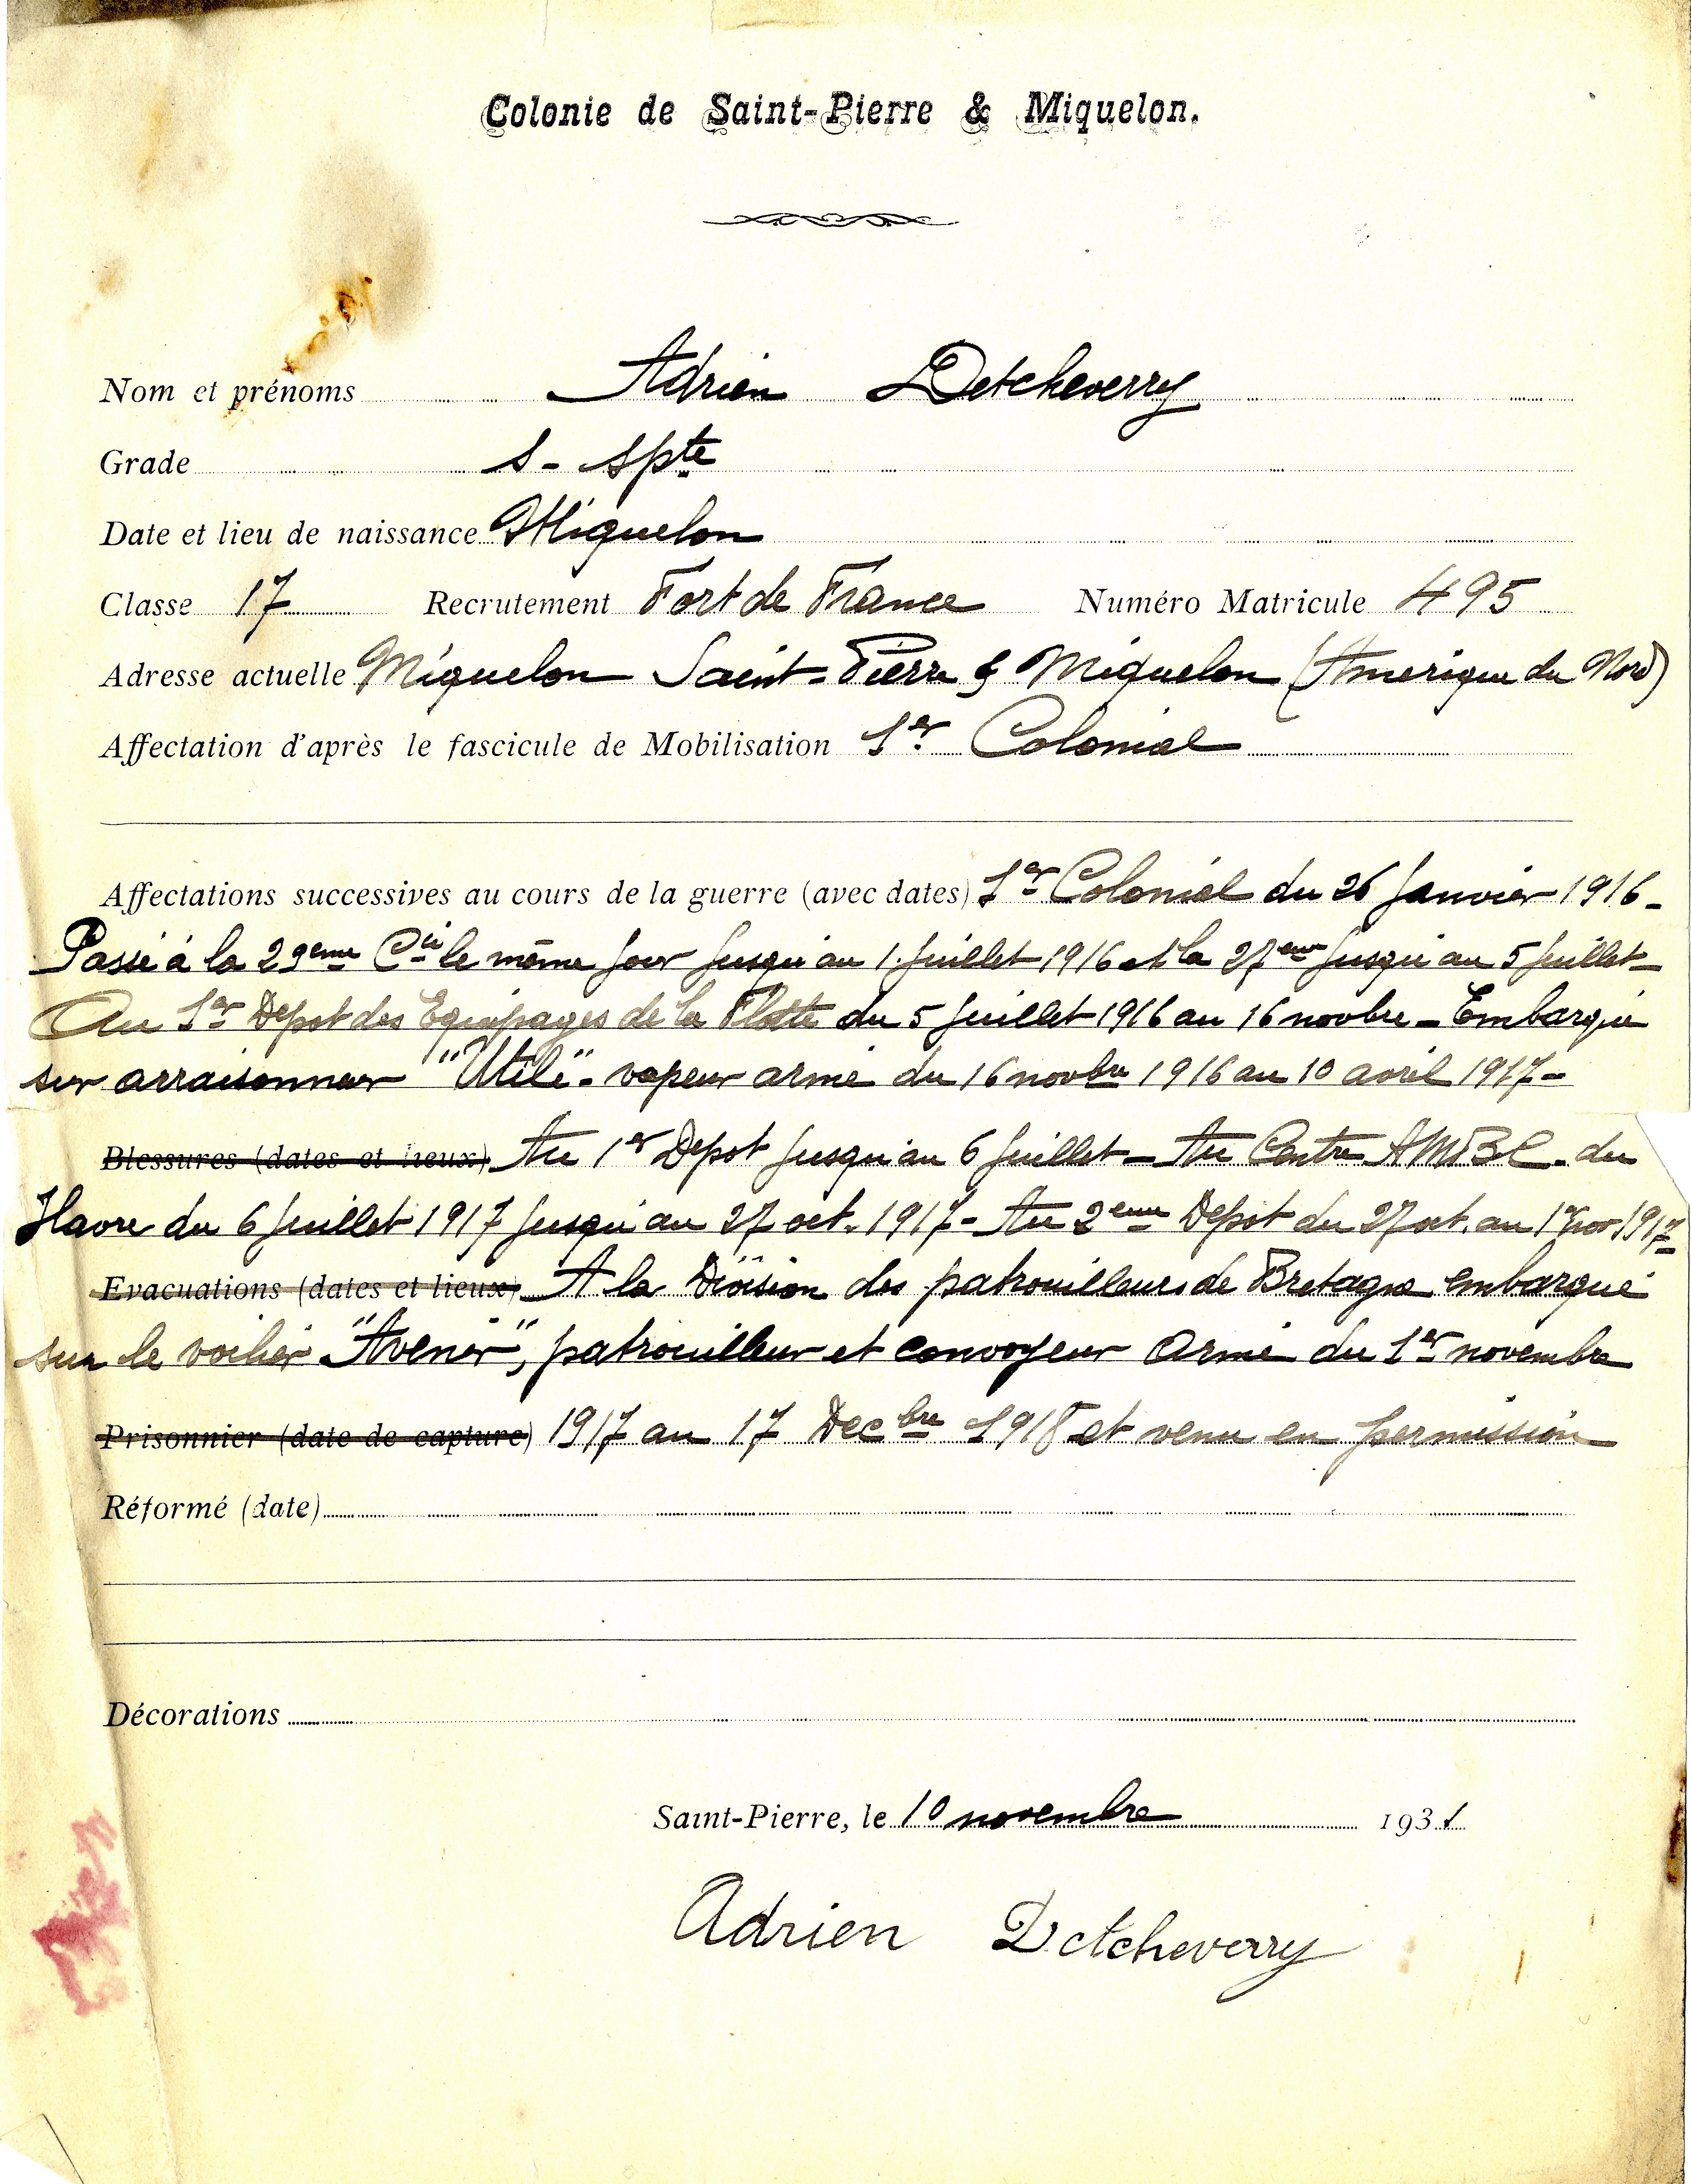 Colonie de Saint-Pierre & Miquelon.
Nom et prénoms Adrien Detcheverry
Grade S - spte
Date et lieu de naissance Miquelon
Classe 17 Recrutement Fort de France Numéro Matricule 495
Adresse actuelle Miquelon Saint-Pierre & Miquelon (Amerique du Nord)
Affectation d'après le fascicule de Mobilisation 1er Colonial
Affectations successives au cours de la guerre (avec dates) 1er Colonial du 26 Janvier 1916 -
Passé à la 29eme Cie le même jour jusqu'au 1. juillet 1916 et la 27eme jusqu'au 5 juillet -
Au 1er Depot des Equipages de la Flotte du 5 juillet 1916 au 16 novbre - Embarqué
sur arraisonneur "Utile" - vapeur armé du 16 novbre 1916 au 10 avril 1917 -
Blessures (dates et lieux) Au 1er Depot jusqu'au 6 juillet - Au Centre AMBC. du
Havre du 6 juillet 1917 jusqu'au 27 oct. 1917 - Au 2eme Depôt du 27 oct. au 1er nov 1917 -
Evacuations (dates et lieux) A la Division des patrouilleurs de Bretagne embarqué
sur le voilier "Avenir", patrouilleur et convoyeur armé du 1er novembre
Prisonnier (date de capture) 1917 au 17 Decbre 1918 et venu en permission
Réformé (date)
Décorations
Saint-Pierre, le 10 novembre 1931
Adrien Detcheverry